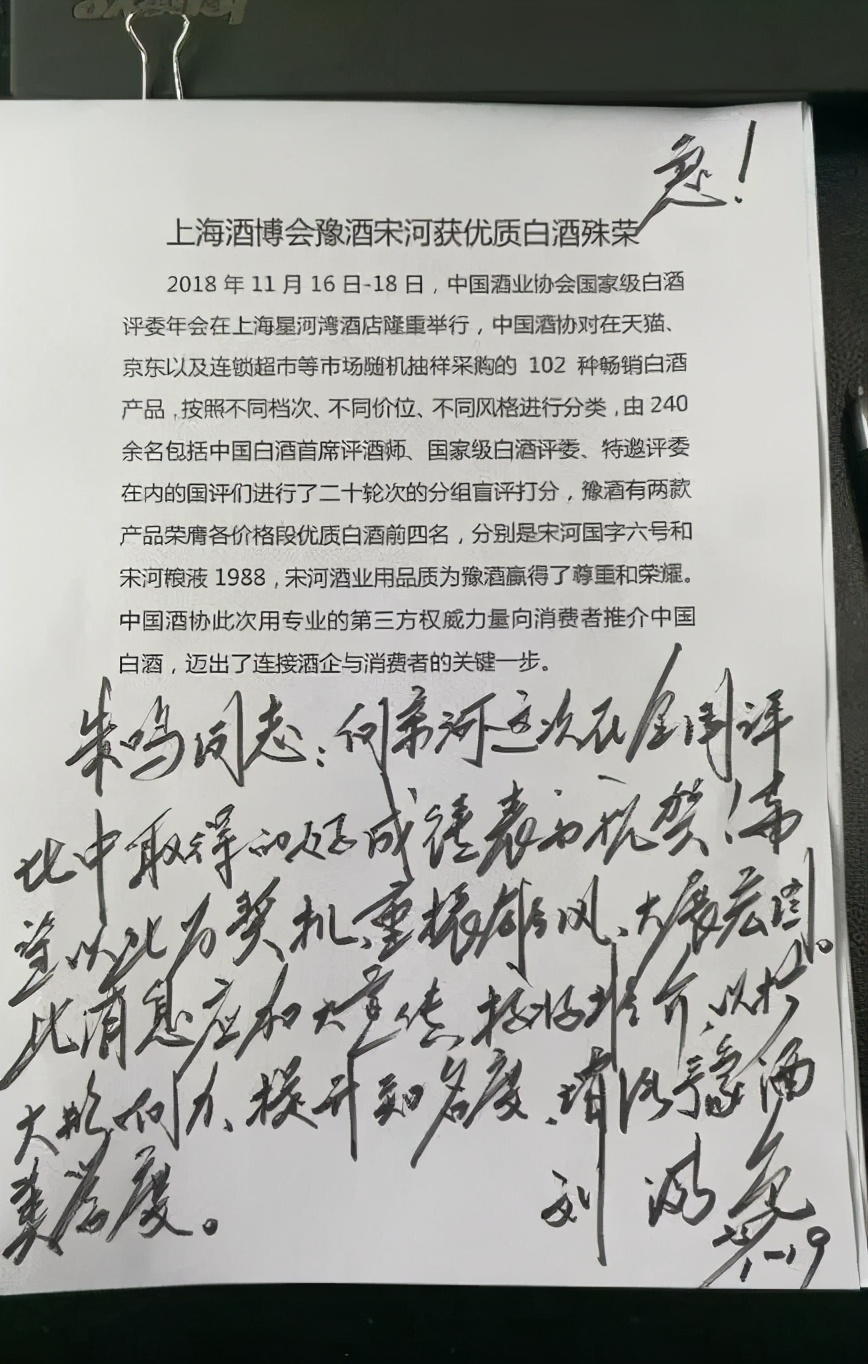 急！
上海酒博会豫酒宋河获优质白酒殊荣
2018年11月16日-18日，中国酒业协会国家级白酒
评委年会在上海星河湾酒店隆重举行，中国酒协对在天猫、
京东以及连锁超市等市场随机抽样采购的 102 种畅销白酒
产品，按照不同档次、不同价位、不同风格进行分类，由240
余名包括中国白酒首席评酒师、国家级白酒评委、特邀评委
在内的国评们进行了二十轮次的分组盲评打分，豫酒有两款
产品荣膺各价格段优质白酒前四名，分别是宋河国字六号和
宋河粮液1988，宋河酒业用品质为豫酒赢得了尊重和荣耀。
中国酒协此次用专业的第三方权威力量向消费者推介中国
白酒，迈出了连接酒企与消费者的关键一步。
朱鸣同志：向宋河这次在全国评
比中取得的好成绩表示祝贺！希
望以此为契机、重振雄风、大展宏图。
此消息应加大宣传、搞好推介、以扩
大影响力、提升知名度、增强豫酒
美誉度。
刘
11-19